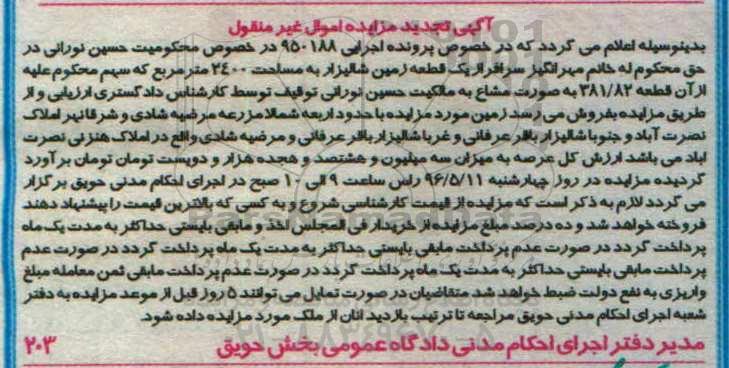 آگهی تجدید مزایده اموال غیر منقول
بدینوسیله اعلام می گردد که در خصوص پرونده اجرایی ۹۵۰۱۸۸ در خصوص محکومیت حسین نورانی در
حق محکوم له خانم مهرانگیز سرافراز یک قطعه زمین شالیزار به مساحت ۲۴۰۰ متر مربع که سهم محکوم علیه
از آن قطعه ۳۸۱/۸۲ به صورت مشاع به مالکیت حسین نورانی توقیف توسط کارشناس دادگستری ارزیابی و از
طریق مزایده بفروش می رسد زمین مورد مزایده با حدود اربعه شمالا مزرعه مرضیه شادی و شرقا نیر املاک
نصرت آباد و جنوبا شالیزار باقر عرفانی و غربا شالیزار باقر عرفانی و مرضیه شادی واقع در املاک هنزنی نصرت
اباد می باشد ارزش کل عرصه به میزان سه میلیون و هشتصد و هجده هزار و دویست تومان تومان برآورد
گردیده مزایده در روز چهارشنبه ۹۶/۵/۱۱ راس ساعت ۹ الی ۱۰ صبح در اجرای احکام مدنی حویق برگزار
می گردد لازم به ذکر است که مزایده از قیمت کارشناسی شروع و به کسی که بالاترین قیمت را پیشنهاد دهند
فروخته خواهد شد و ده درصد مبلغ مزایده از خریدار فی المجلس اخذ و مابقی بایستی حداکثر به مدت یک ماه
پرداخت گردد در صورت عدم پرداخت مابقی بایستی حداکثر به مدت یک ماه پرداخت گردد در صورت عدم
پرداخت مابقی بایستی حداکثر به مدت یک ماه پرداخت گردد در صورت عدم پرداخت مابقی ثمن معامله مبلغ
واریزی به نفع دولت ضبط خواهد شد متقاضیان در صورت تمایل می توانند ۵ روز قبل از موعد مزایده به دفتر
شعبه اجرای احکام مدنی حویق مراجعه تا ترتیب بازدید انان از ملک مورد مزایده داده شود.
مدیر دفتر اجرای احکام مدنی دادگاه عمومی بخش حویق ۲۰۳
ParsNamadData